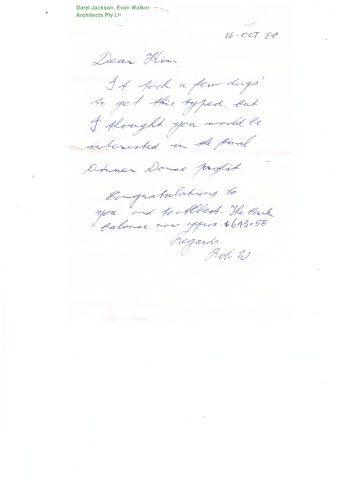 Daryl Jackson, Evan Walker
Architects Pty Ltd
16 OCT 80
Dear Kim,
It took a few days
to get this typed, but
I thought you would be
interested in the final
Dinner Dance profit.
Congratulations to
you and to The Bank
balance now approx $643.58
Regards.
Rob W